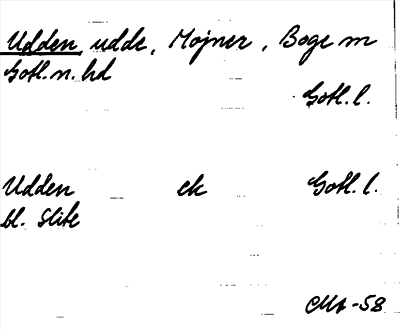 Udden, udde, Mojner, Boge sn
Gotl. n. hd
Gotl. l.
Udden ek Gotl. l.
bl. Slite